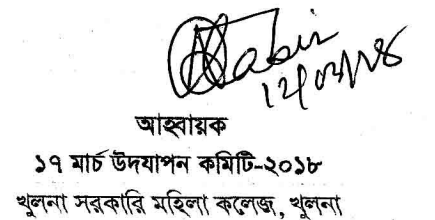 আহ্বায়ক
১৭ মার্চ উদযাপন কমিটি-২০১৮
খুলনা সরকারি মহিলা কলেজ, খুলনা